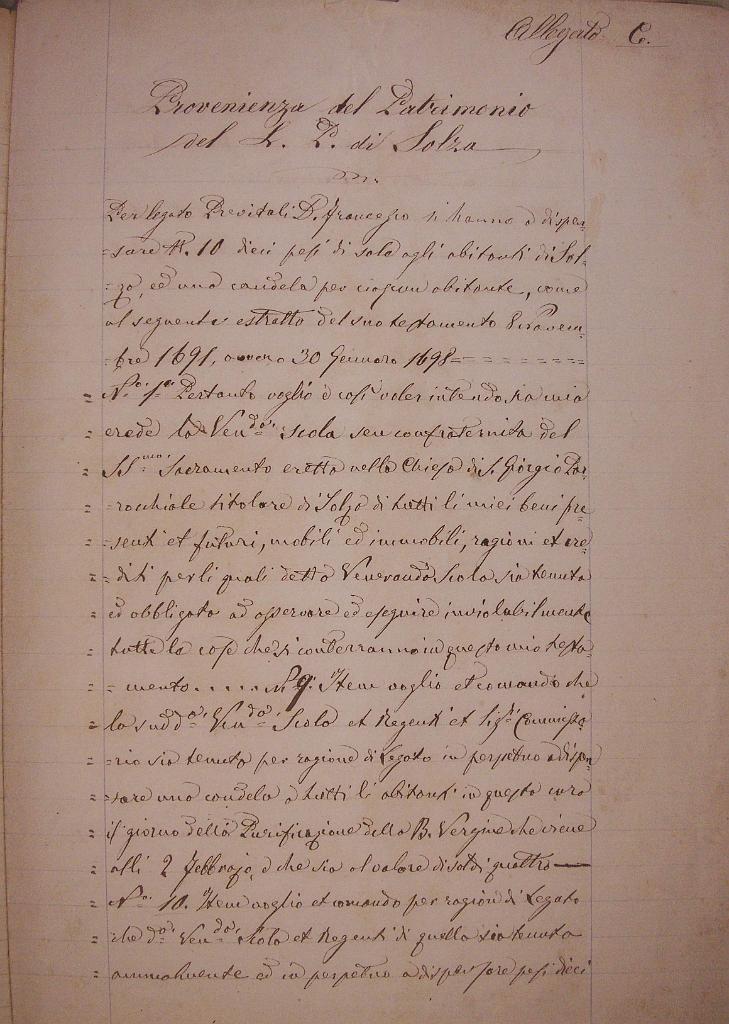 Allegato C.
Provenienza del Patrimonio
del L. P. di Solza
Per legato Previtali D. Francesco si hanno a dispen-
=sare N. 10 dieci pesi di sale agli abitanti di Sol-
=za, ed una candela per ciascun abitante, come
al seguente estratto del suo testamento 8 Novem-
bre 1691, ovvero 30 Gennaro 1698=
= N.º 1º Pertanto voglio e così voler intendo, sia mia
erede la Ven.da Scola seu confraternita del
= SS.mo Sacramento eretta nella Chiesa di S. Giorgio Par-
= rochiale titolare di Solza di tutti li miei beni pre-
= senti et futuri, mobili ed immobili, ragioni et cre-
= diti per li quali detta Veneranda Scola sia tenuta
= ed obbligata ad osservare ed eseguire inviolabilmente
= tutte le cose che si conterranno in questo mio testa-
= mento..... N. 9. Item voglio et comando che
= la sud.da Ven.da Scola et Regenti et Sig.i Commissa-
= rio sia tenuta per ragione di Legato in perpetuo a dispen-
= sare una candela a tutti li abitanti in questa cura
il giorno della Purificazione della B. Vergine che viene
= alli 2 Febbrajo, e che sia al valore di soldi quattro
= N.º 10. Item voglio et comando per ragion di Legato
= che d.a Ven.da Scola et Regenti di quella sia tenuta
= annualmente ed in perpetuo a dispensare pesi dieci